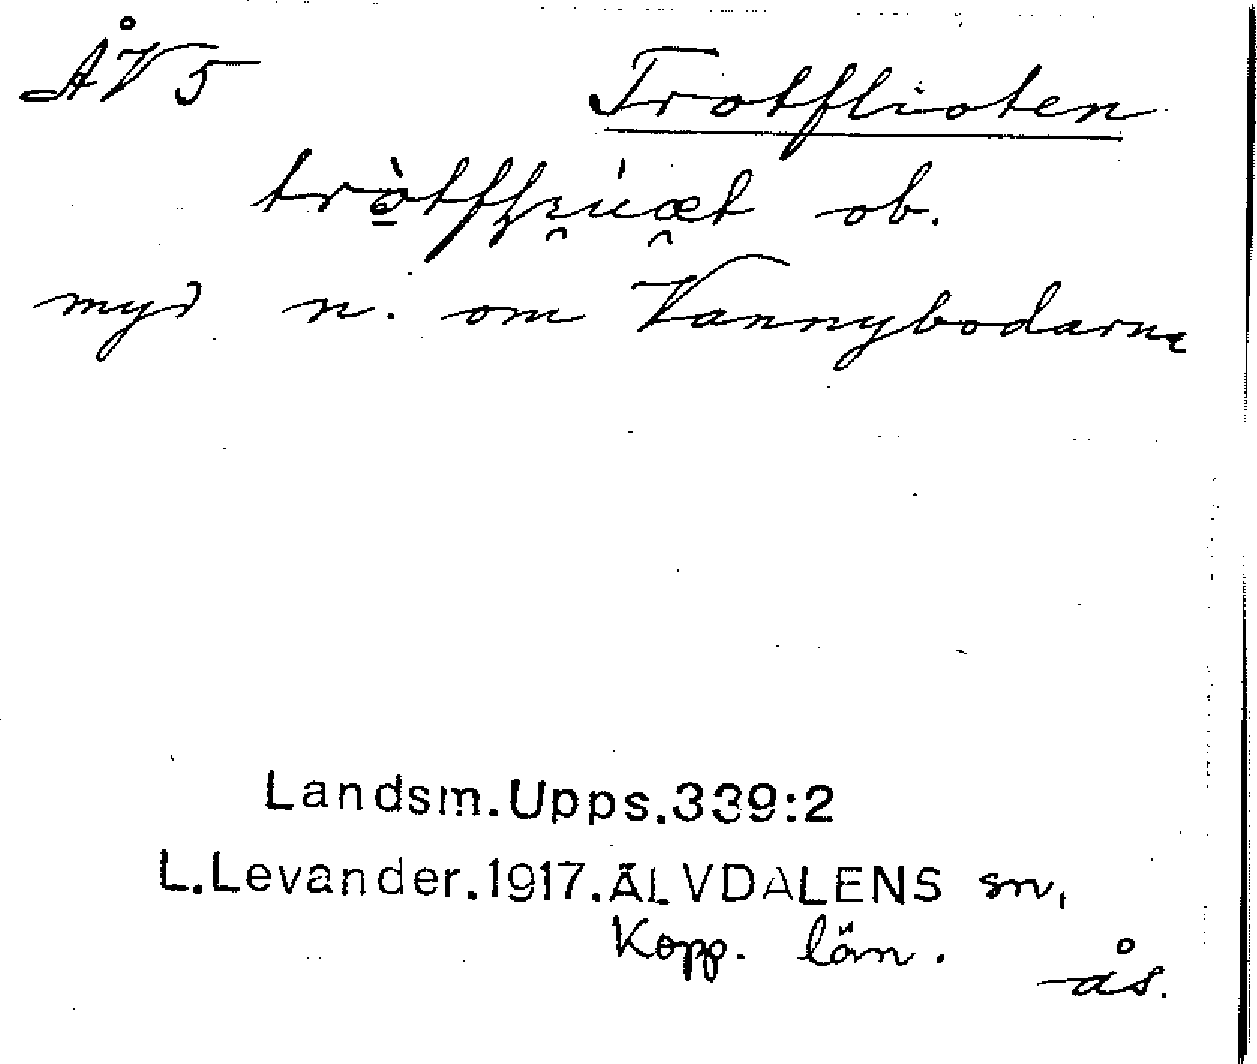 ÅV 5 Trotflioten
ob.
myr n. om Vannybodarna
Landsm.Upps.339:2
L.Levander.1917.ÄLVDALENS sn.
Kopp. län.
-ås.